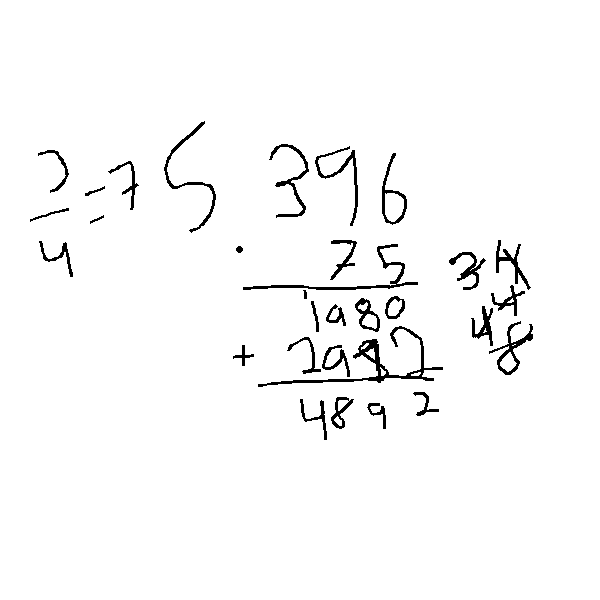 3/4 = 75 396
· 75
1980
+ 2992
4892
34
4
4
8